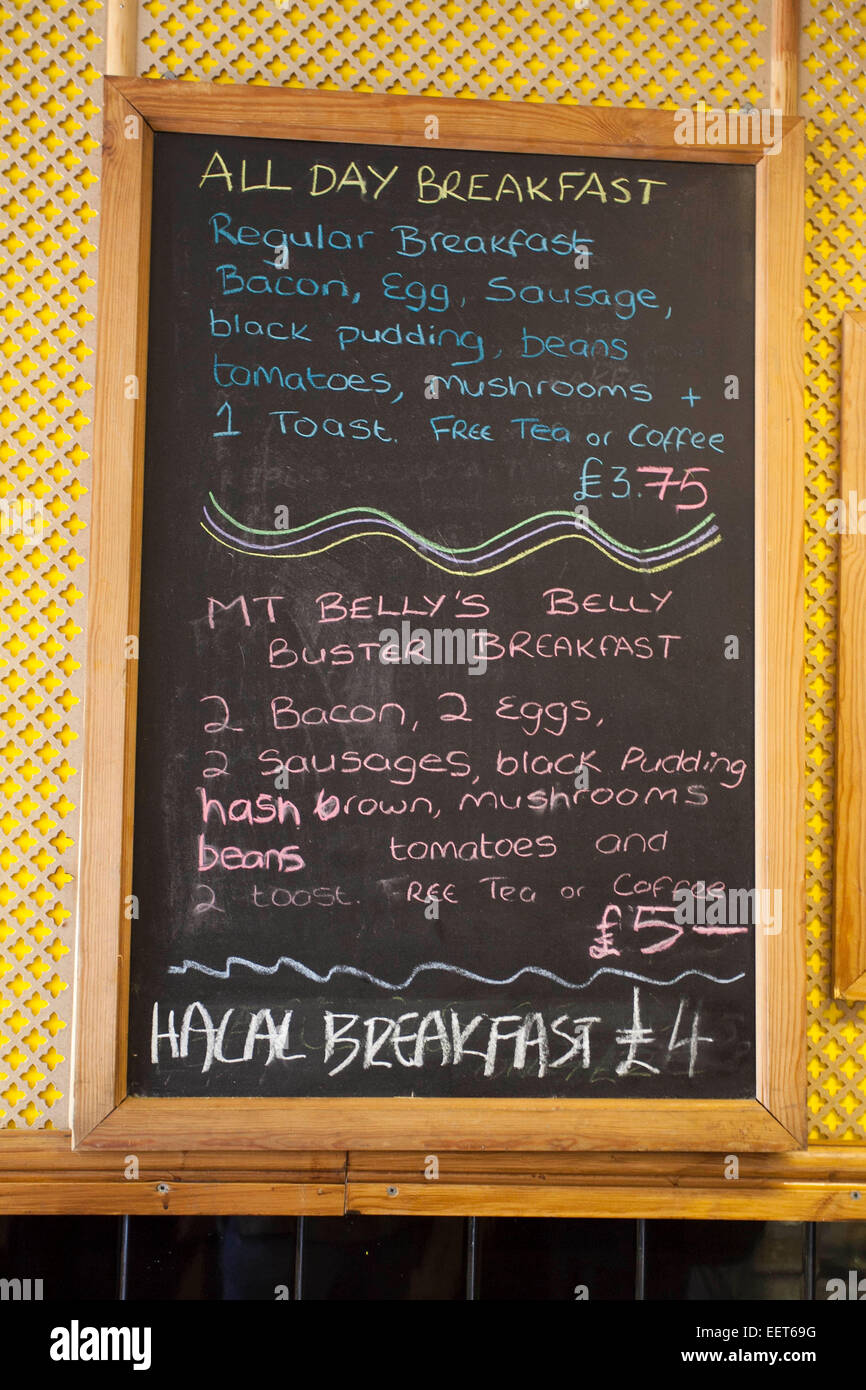 ALL DAY BREAKFAST
Regular Breakfast
Bacon, Egg, Sausage,
black pudding, beans
tomatoes, mushrooms +
1 Toast. FREE Tea or Coffee
£3.75
MT BELLY'S BELLY
BUSTER BREAKFAST
2 Bacon, 2 Eggs,
2 Sausages, black Pudding
hash brown, mushrooms
beans tomatoes and
2 toast. FREE Tea or Coffee
£5—
HALAL BREAKFAST £4
alamy
Image ID: EET69G
www.alamy.com